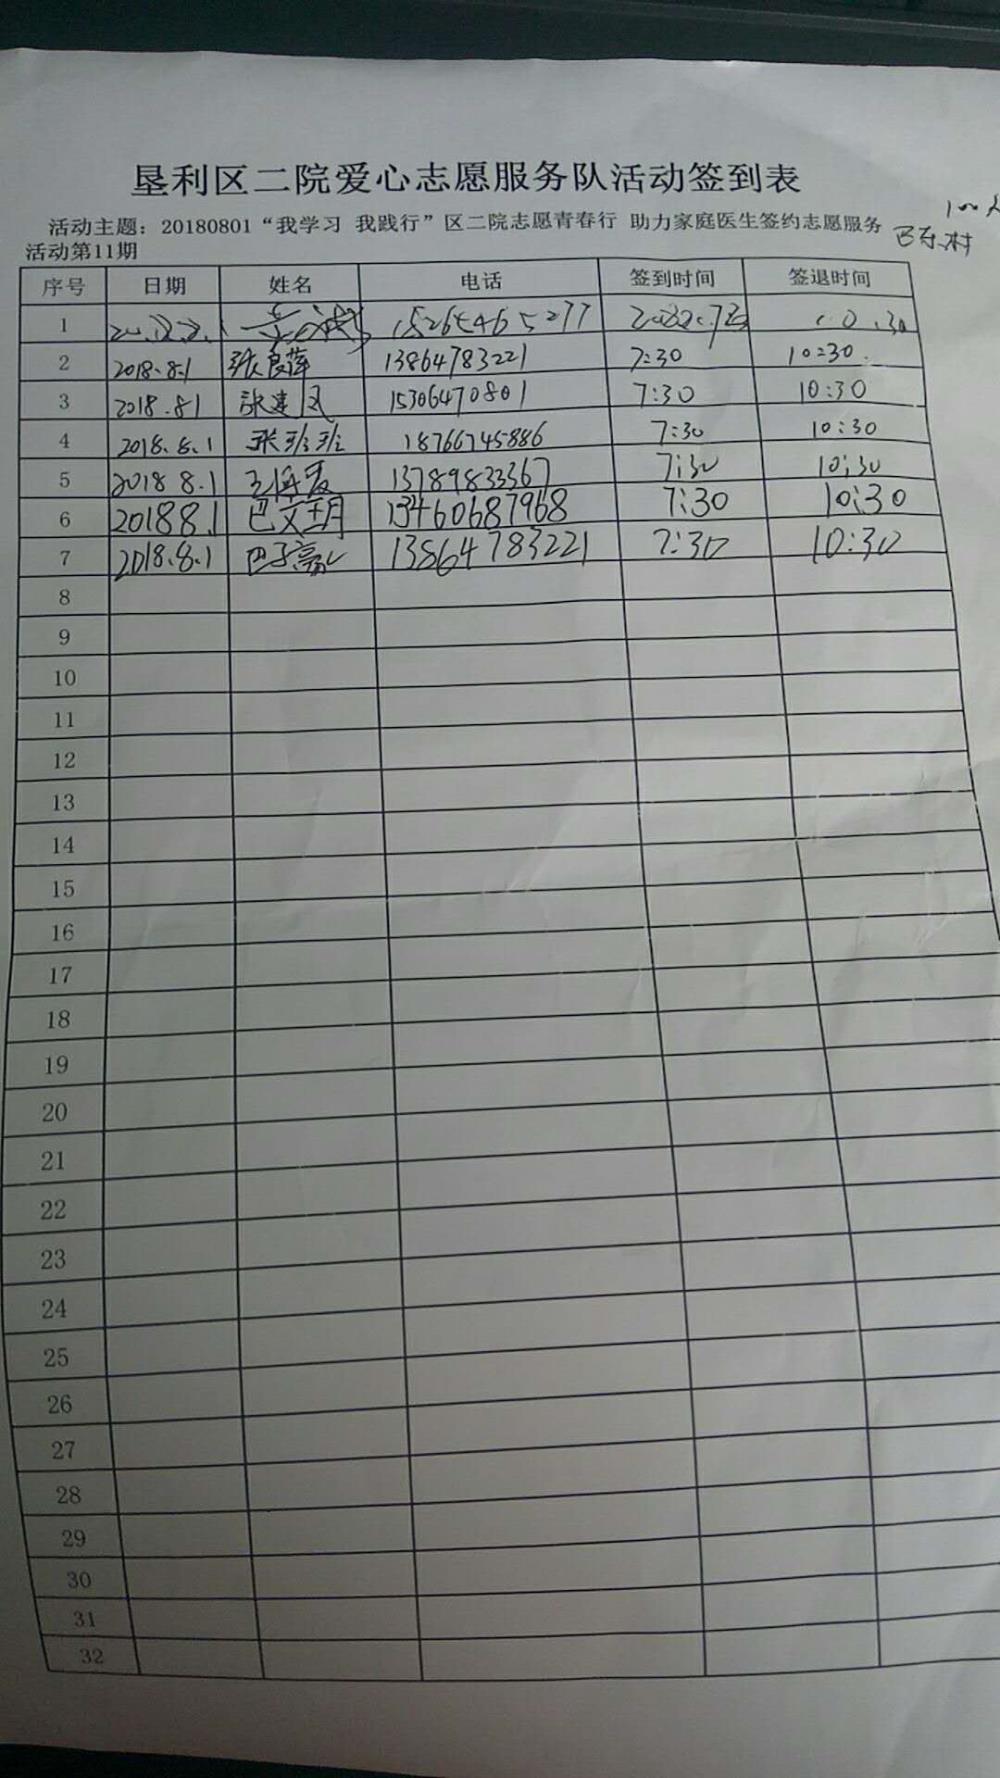 垦利区二院爱心志愿服务队活动签到表
活动主题：20180801“我学习 我践行”区二院志愿青春行 助力家庭医生签约志愿服务
活动第11期
序号 日期 姓名 电话 签到时间 签退时间
1 15265465277 10:30
2 2018.8.1 张良萍 13864783221 7:30 10:30
3 2018.81 张建凤 15306470801 7:30 10:30
4 2018.8.1 张班班 18766745886 7:30 10:30
5 2018 8.1 王海霞 13789833367 7:30 10:30
6 2018 8.1 巴文玥 13460687968 7:30 10:30
7 2018.8.1 巴子 13864783221 7:30 10:30
8
9
10
11
12
13
14
15
16
17
18
19
20
21
22
23
24
25
26
27
28
29
30
31
32